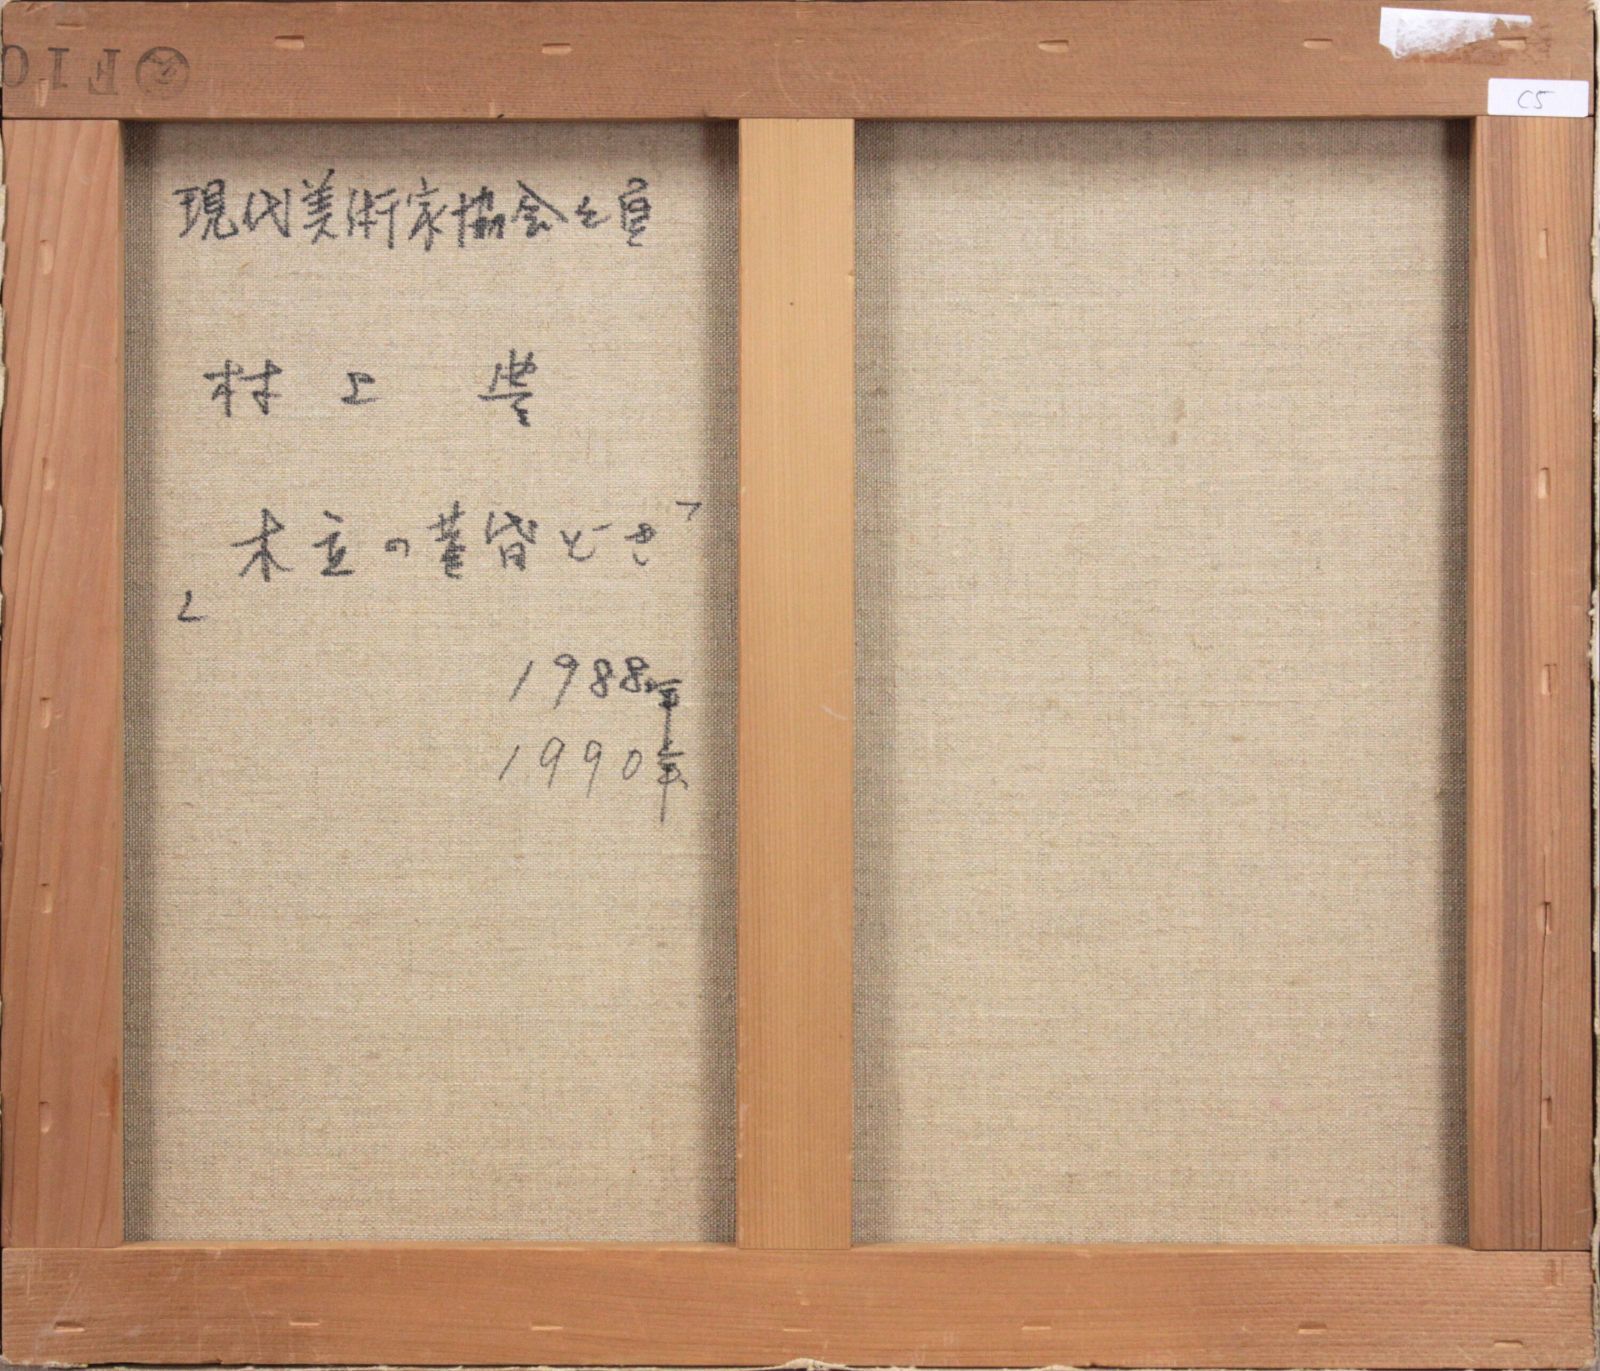 F10
C5
現代美術家協会々員
村上 豊
木立の黄昏どき
1988年
1990年